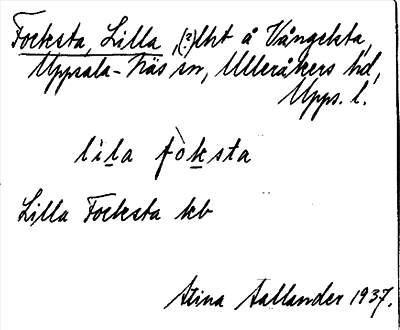 Focksta, Lilla, (?) lht å Vångelsta,
Uppsala-Näs sn, Ulleråkers hd,
Upps. l.
lila fòksta
Lilla Focksta kb
Stina Aallander 1937.